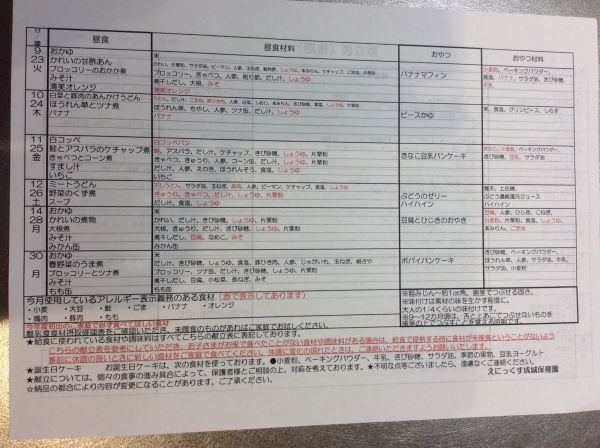 日 曜 昼食 昼食材料 おやつ おやつ材料
9 おかゆ 米
23 かれいの甘酢あん かれい、片栗粉、サラダ油、ピーマン、人参、玉ねぎ、穀物酢、しょうゆ、本みりん、ケチャップ、ごま油、片栗粉 バナナマフィン 小麦粉、ベーキングパウダー、
火 ブロッコリーのおかか煮 ブロッコリー、きゃべつ、人参、削り節、だし汁、しょうゆ 食塩、バナナ、サラダ油、きび砂糖、
みそ汁 煮干しだし、大根、みそ 牛乳
清美オレンジ 清美オレンジ
10 白菜と豚肉のあんかけうどん うどん、だし汁、ごま油、豚ひき肉、人参、白菜、しめじ、本みりん、きび砂糖、しょうゆ、片栗粉 ピースかゆ 米、食塩、グリンピース、しらす
24 ほうれん草とツナ煮 ほうれん草、もやし、人参、ツナ缶、だし汁、しょうゆ
木 バナナ バナナ
11 白コッペ 白コッペパン きなこ豆乳パンケーキ きなこ、小麦粉、ベーキングパウダー、
25 鮭とアスパラのケチャップ煮 鮭、アスパラ、だし汁、ケチャップ、きび砂糖、しょうゆ、片栗粉 きび砂糖、豆乳、サラダ油
金 きゃべつとコーン煮 きゃべつ、きゅうり、人参、コーン缶、だし汁、しょうゆ、片栗粉
すまし汁 だし汁、人参、えのき、ほうれん草、食塩、しょうゆ
いちご いちご
12 ミートうどん 干しうどん、サラダ油、玉ねぎ、豚肉、人参、ピーマン、ケチャップ、食塩、きび砂糖 ぶどうのゼリー 寒天、上白糖、
26 野菜のくずき煮 きゅうり、きゃべつ、だし汁、しょうゆ、片栗粉 ハイハイン ぶどう濃縮還元ジュース
土 スープ だし汁、食塩、しょうゆ ハイハイン
14 おかゆ 米 豆腐とひじきのおやき 豆腐、人参、ひじき、こねぎ、
28 かれいの煮物 かれい、だし汁、きび砂糖、しょうゆ、片栗粉 小麦粉、片栗粉、食塩、しょうゆ、
月 大根煮 大根、きゅうり、だし汁、きび砂糖、しょうゆ、片栗粉 本みりん、ごま油
みそ汁 煮干しだし、豆腐、なめこ、みそ
みかん缶 みかん缶
30 おかゆ 米 ポパイパンケーキ きび砂糖、ベーキングパウダー、
春野菜のうま煮 だし汁、ケチャップ、きび砂糖、食塩、豚ひき肉、人参、じゃがいも、玉ねぎ、絹さや ほうれん草、人参、サラダ油、牛乳、
月 ブロッコリーとツナ煮 ブロッコリー、ツナ缶、だし汁、きび砂糖、しょうゆ、片栗粉 サラダ油、小麦粉
みそ汁 煮干しだし、豆腐、小松菜、長ねぎ、みそ
もも缶 もも缶
今月使用しているアレルギー表示義務のある食材(赤で表示してあります)
・小麦 ・大豆 ・鮭 ・ごま ・バナナ ・オレンジ
・鶏肉 ・豚肉 ・もも
※味付けは素材の味を生かす程度に。
大人の1/4くらいの味付けです。
離乳食食材摂取確認表をご確認いただき、未摂食のものがあればご家庭でお試しください。
★給食に使われている食材や調味料はすべてこちらの献立表に表記しております。
こちらの献立表を参考にしていただき、お子さんがお家で食べたことがない食材や調味料がある場合は、給食で提供する時に食材が未摂食ということがないよう
事前に体調の良いときに新しい食材をご家庭で食べてください。体調に変化の見れたときは、ご連絡いただきますようお願いいたします。
★誕生日ケーキ お誕生日ケーキは、次の食材を使っております。●小麦粉、ベーキングパウダー、牛乳、きび砂糖、サラダ油、季節の果物、豆乳ヨーグルト
★献立については、個々の食事の進み具合によって、保護者様とご相談の上、対応を考えております。★不明な点等ございましたら、遠慮なくご連絡ください。
☆納品の都合により内容が変更になることがあります。ご了承ください。 えにっくす成城保育園